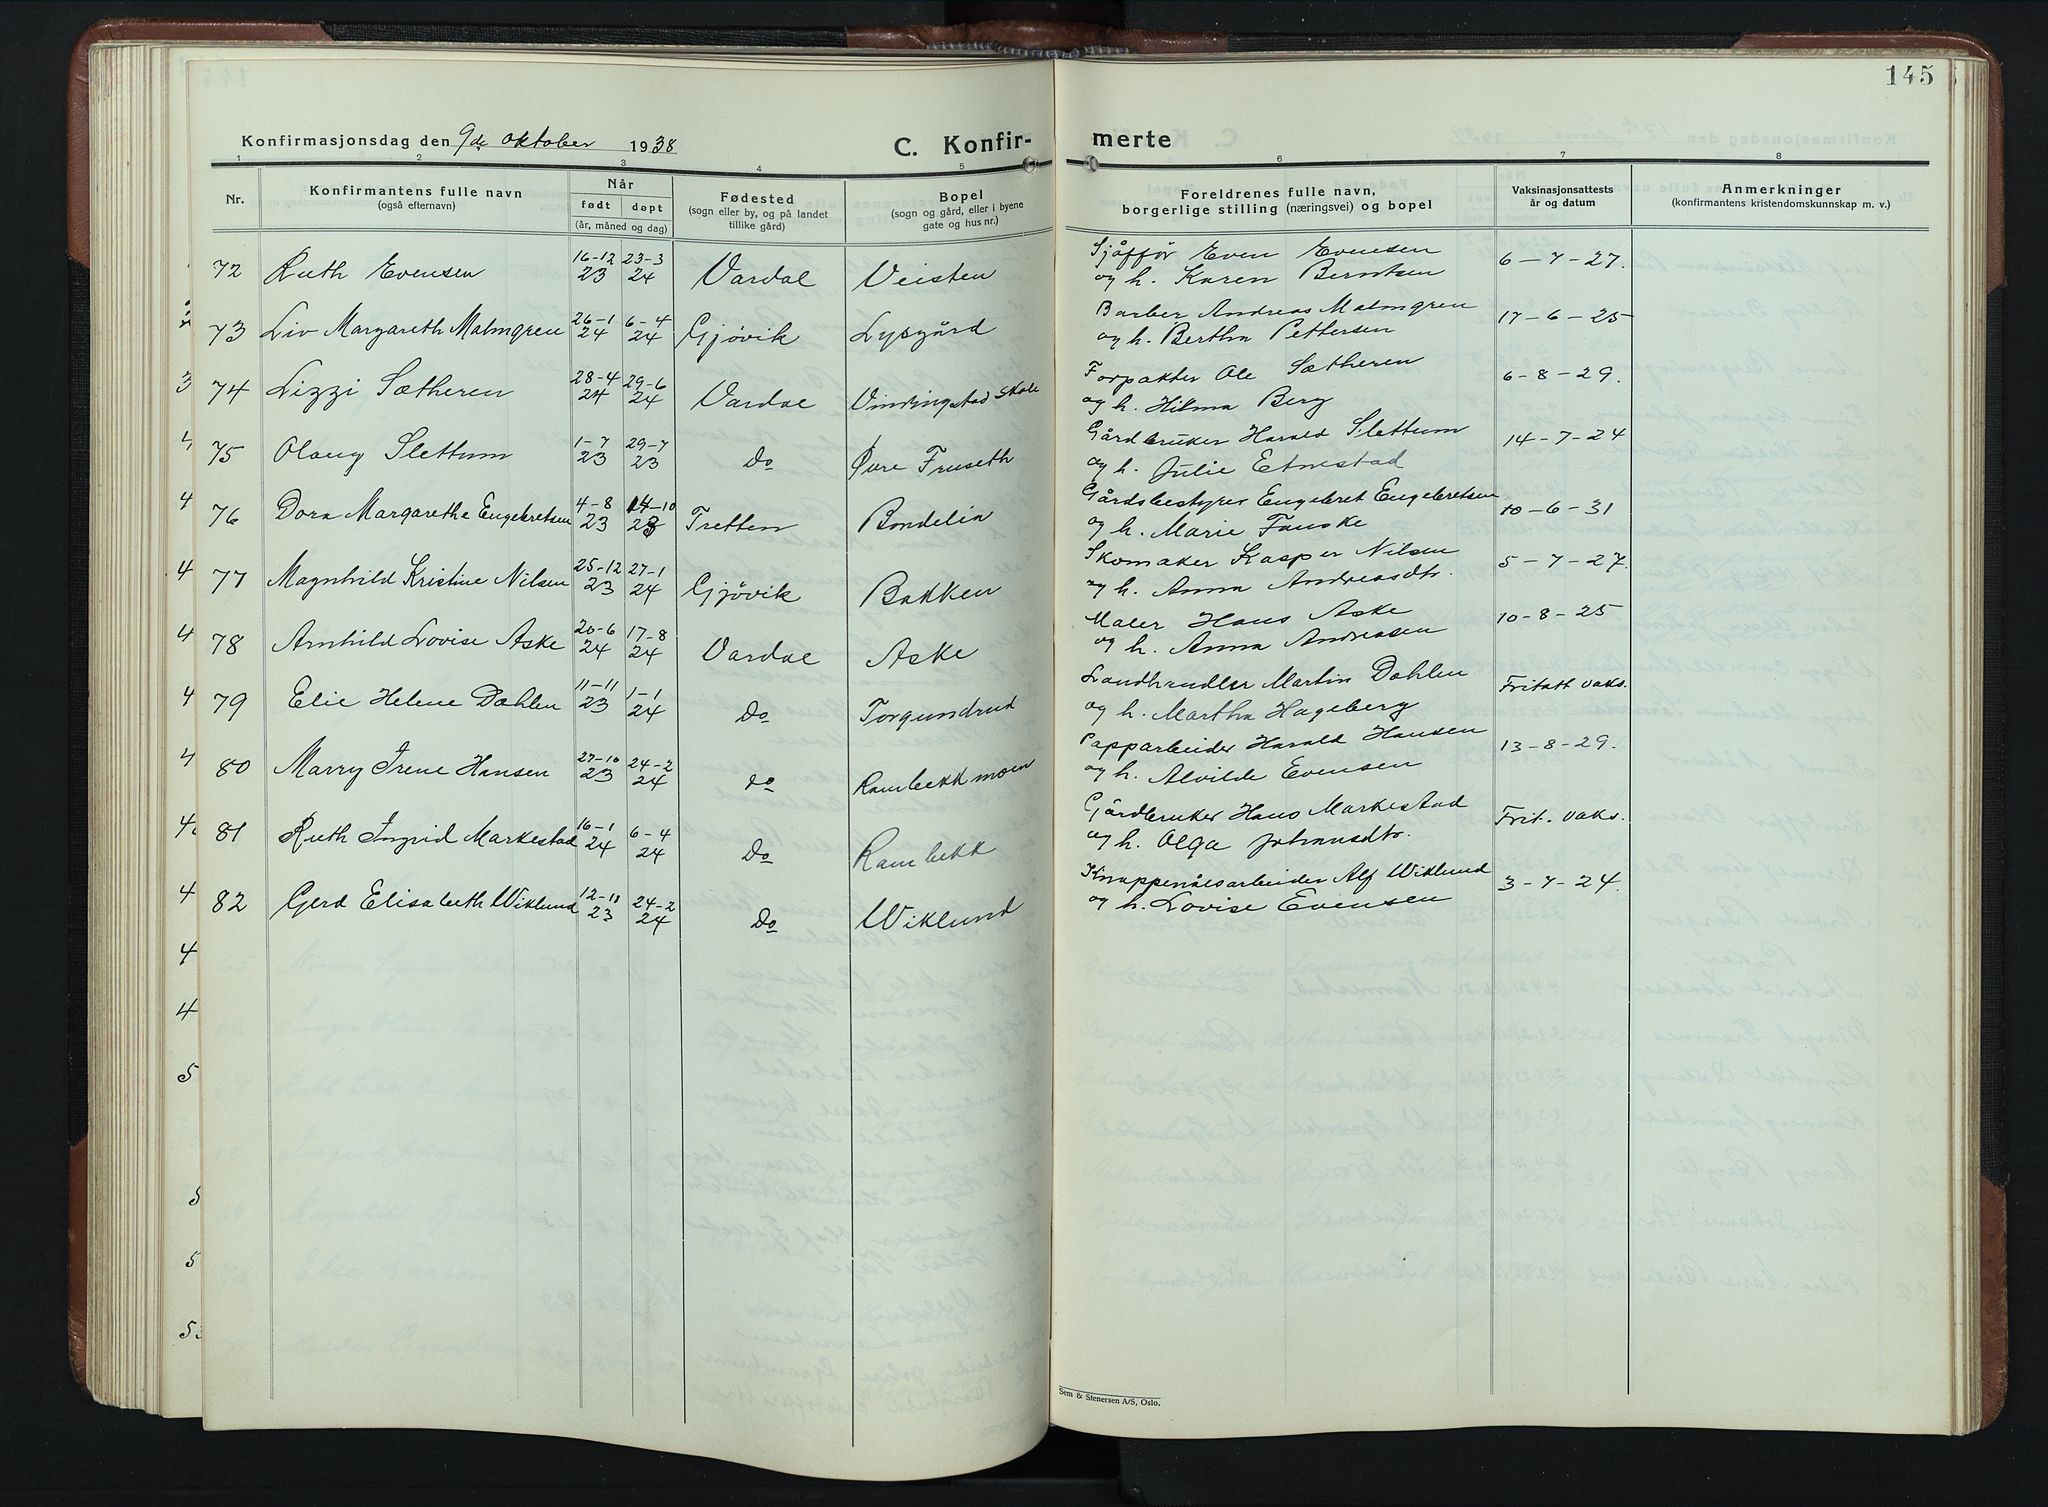 145
Konfirmasjonsdag den 9de oktober 1938
C. Konfir-
merte
1 2 3 4 5 6 7 8
Nr.
Konfirmantens fulle navn
(også efternavn)
Når
født døpt
(år, måned og dag)
Fødested
(sogn eller by, og på landet
tillike gård)
Bopel
(sogn og gård, eller i byene
gate og hus nr.)
Foreldrenes fulle navn,
borgerlige stilling (næringsvei) og bopel
Vaksinasjonsattests
år og datum
Anmerkninger
(konfirmantens kristendomskunnskap m. v.)
72 Ruth Evensen 16-12 23 23-3 24 Vardal Veisten
Sjåffør Even Evensen
og h. Karen Berntsen
6-7-27.
73 Liv Margareth Malmgren 26-1 24 6-4 24 Gjøvik Lysgård
Barber Andreas Malmgren
og h. Bertha Pettersen
17-6-25
74 Lizzi Sætheren 28-4 24 29-6 24 Vardal Vindingstad skole
Forpakter Ole Sætheren
og h. Hilma Berg
6-8-29.
75 Olaug Slettum 1-7 23 29-7 23 Do Øvre Fruseth
Gårdbruker Harald Slettum
og h. Julie Etnestad
14-7-24
76 Dora Margarethe Engebretsen 4-8 23 14-10 23 Tretten Bondelia
Gårdsbestyrer Engebret Engebretsen
og h. Marie Fauske
10-6-31
77 Magnhild Kristine Nilsen 25-12 23 27-1 24 Gjøvik Bakken
Skomaker Kasper Nilsen
og h. Anna Andreasdtr.
5-7-27.
78 Arnhild Lovise Aske 20-6 24 17-8 24 Vardal Aske
Maler Hans Aske
og h. Anna Andreasen
10-8-25
79 Elie Helene Dæhlen 11-11 23 1-1 24 Do Torgundrud
Landhandler Martin Dæhlen
og h. Martha Hageberg
Fritatt vaks.
80 Marry Irene Hansen 27-10 23 24-2 24 do Rambekkmoen
Papparbeider Harald Hansen
og h. Alvilde Evensen
13-8-29.
81 Ruth Ingrid Markestad 16-1 24 6-4 24 Do Rambekk
Gårdbruker Hans Markestad
og h. Olga Johansdtr.
Frit. vaks.
82 Gerd Elisabeth Wiklund 12-11 23 24-2 24 Do Wiklund
Knappenålsarbeider Alf Wiklund
og h. Lovise Evensen
3-7-24.
Sem & Stenersen A/S, Oslo.